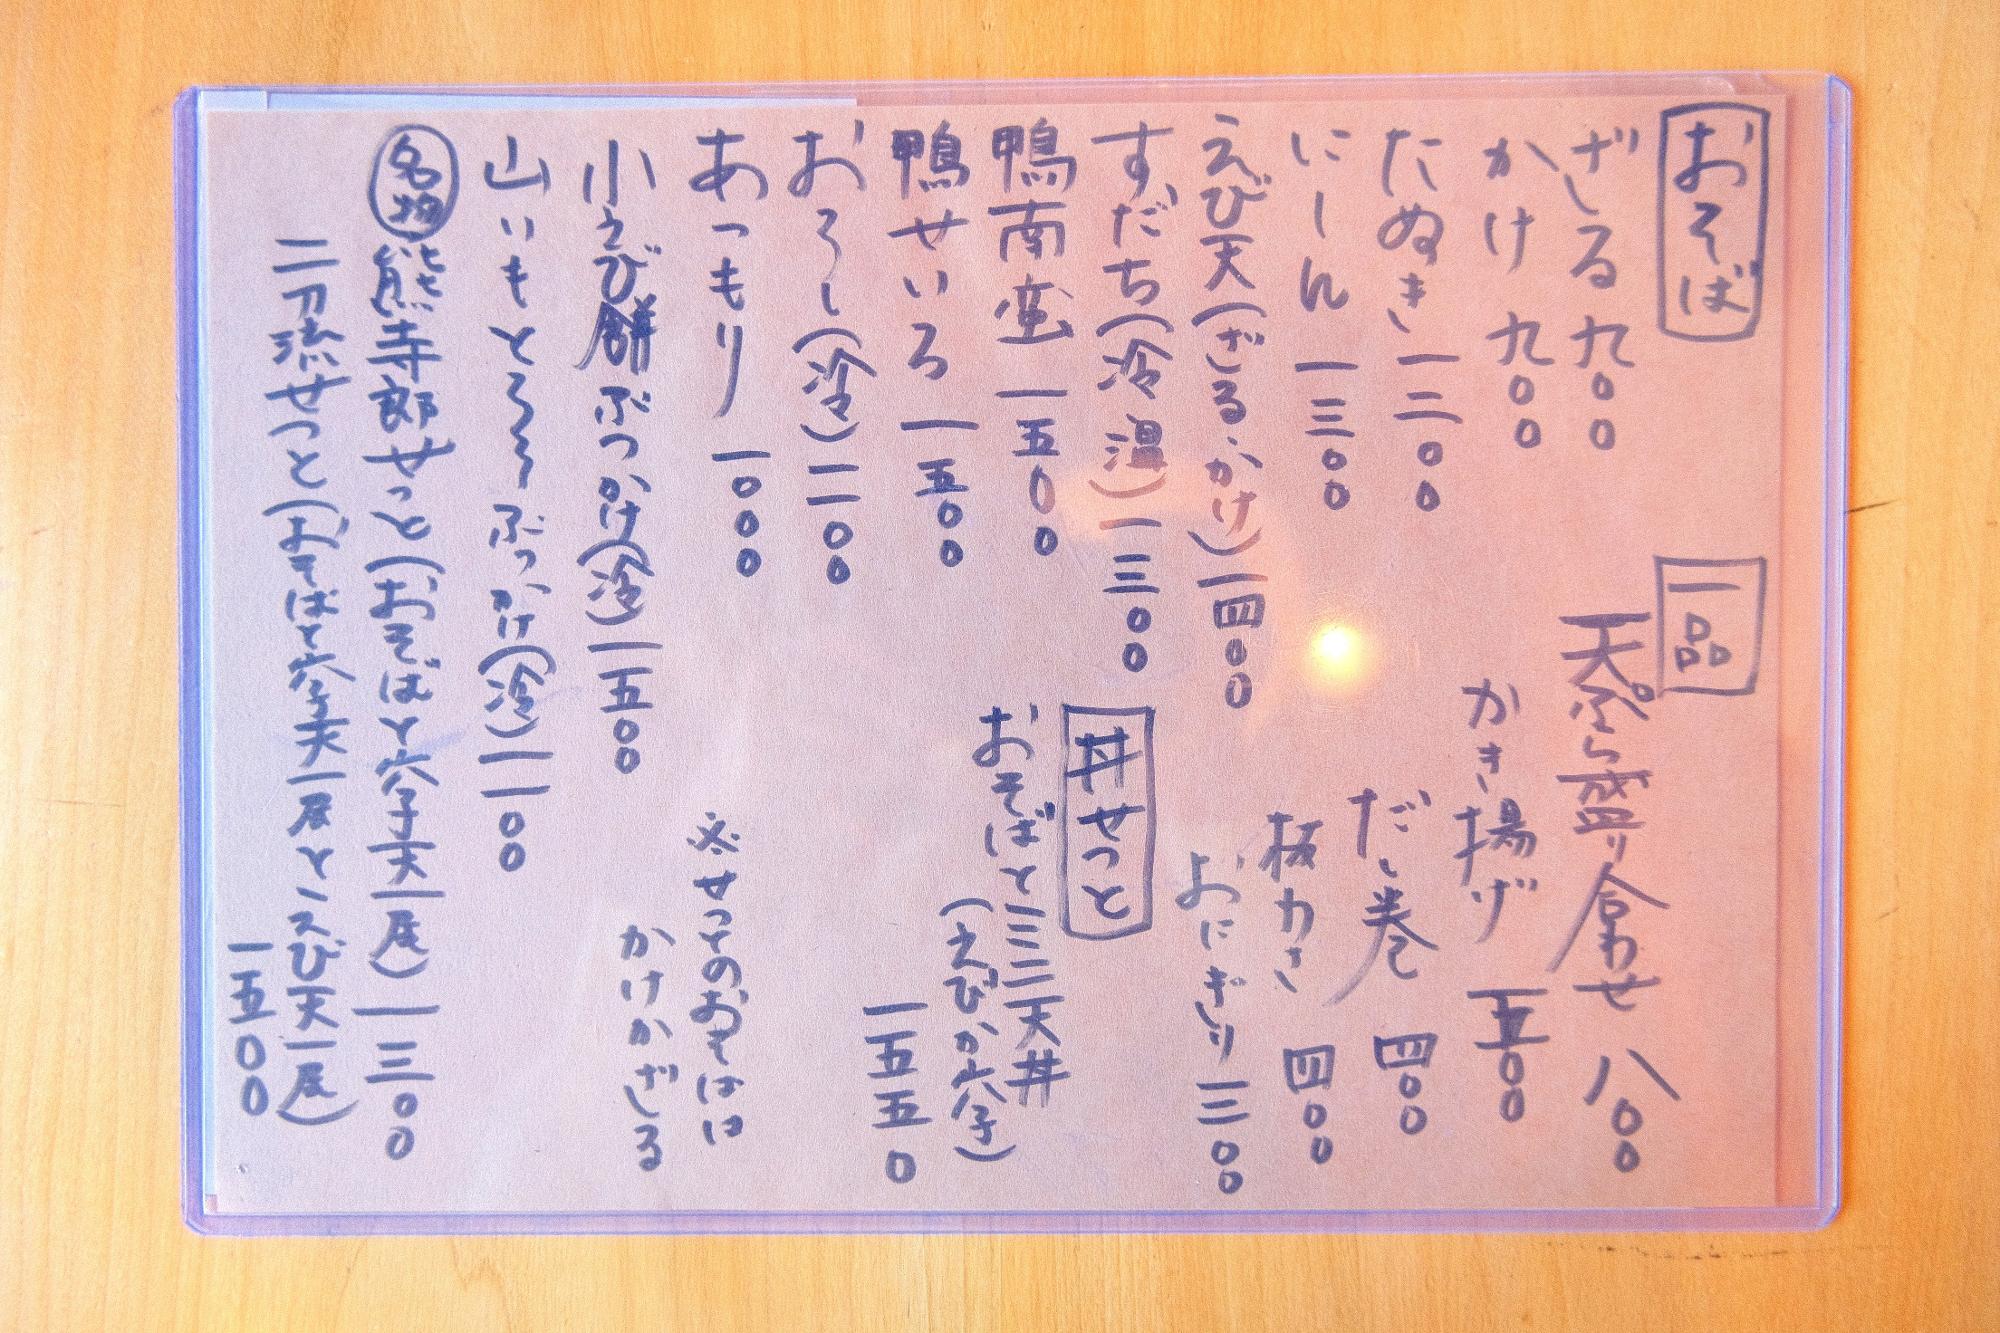 おそば
ざる 九〇〇
かけ 九〇〇
たぬき 一二〇〇
にしん 一三〇〇
えび天(ざる・かけ)一四〇〇
すだち(冷 温)一三〇〇
鴨南蛮 一五〇〇
鴨せいろ 一五〇〇
おろし(冷)一一〇〇
あつもり 一〇〇〇
小えび餅ぶっかけ(冷)一五〇〇
山いもとろろぶっかけ(冷)一一〇〇
名物 熊寺郎せっと(おそばと穴子天一尾)一三〇〇
二刀流せっと(おそばと穴子天一尾とえび天一尾)
一五〇〇
一品
天ぷら盛り合わせ 八〇〇
かき揚げ 五〇〇
だし巻 四〇〇
板わさ 四〇〇
おにぎり 三〇〇
丼せっと
おそばとミニ天丼
(えびか穴子)
一五五〇
※せっとのおそばは
かけかざる